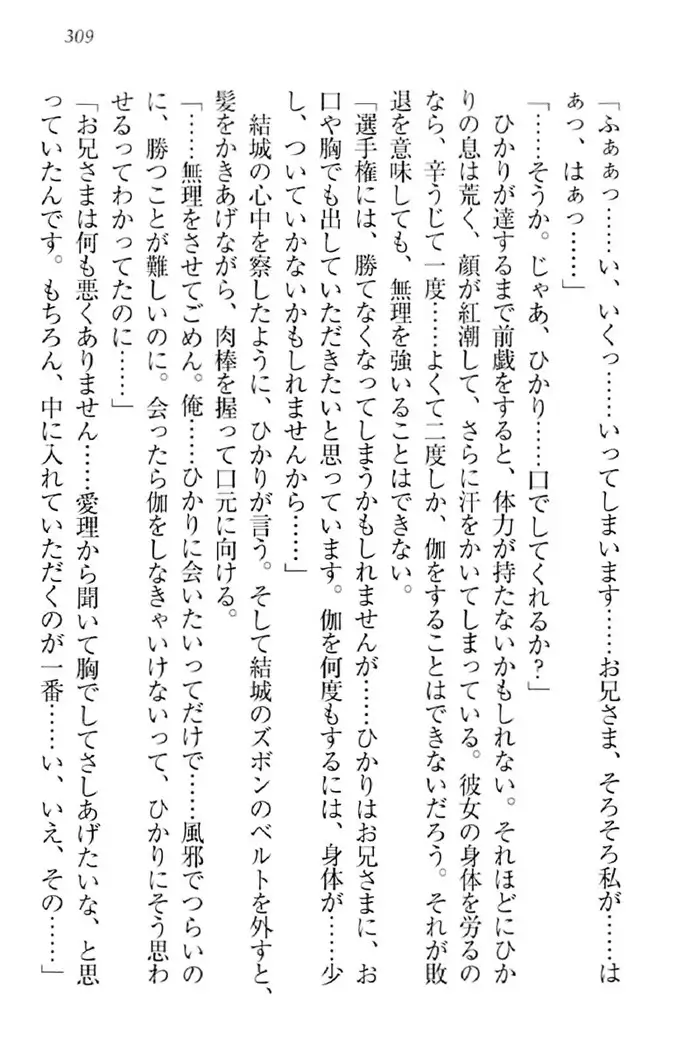 309
「ふぁぁっ……い、いくっ……いってしまいます……お兄さま、そろそろ私が……は
ぁっ、はぁっ……」
「……そうか。じゃあ、ひかり……口でしてくれるか?」
ひかりが達するまで前戯をすると、体力が持たないかもしれない。それほどにひか
りの息は荒く、顔が紅潮して、さらに汗をかいてしまっている。彼女の身体を労るの
なら、辛うじて一度……よくて二度しか、伽をすることはできないだろう。それが敗
退を意味しても、無理を強いることはできない。
「選手権には、勝てなくなってしまうかもしれませんが……ひかりはお兄さまに、お
口や胸でも出していただきたいと思っています。伽を何度もするには、身体が……少
し、ついていかないかもしれませんから……」
結城の心中を察したように、ひかりが言う。そして結城のズボンのベルトを外すと、
髪をかきあげながら、肉棒を握って口元に向ける。
「……無理をさせてごめん。俺……ひかりに会いたいってだけで……風邪でつらいの
に、勝つことが難しいのに。会ったら伽をしなきゃいけないって、ひかりにそう思わ
せるってわかってたのに……」
「お兄さまは何も悪くありません……愛理から聞いて胸でしてさしあげたいな、と思
っていたんです。もちろん、中に入れていただくのが一番……い、いえ、その……」